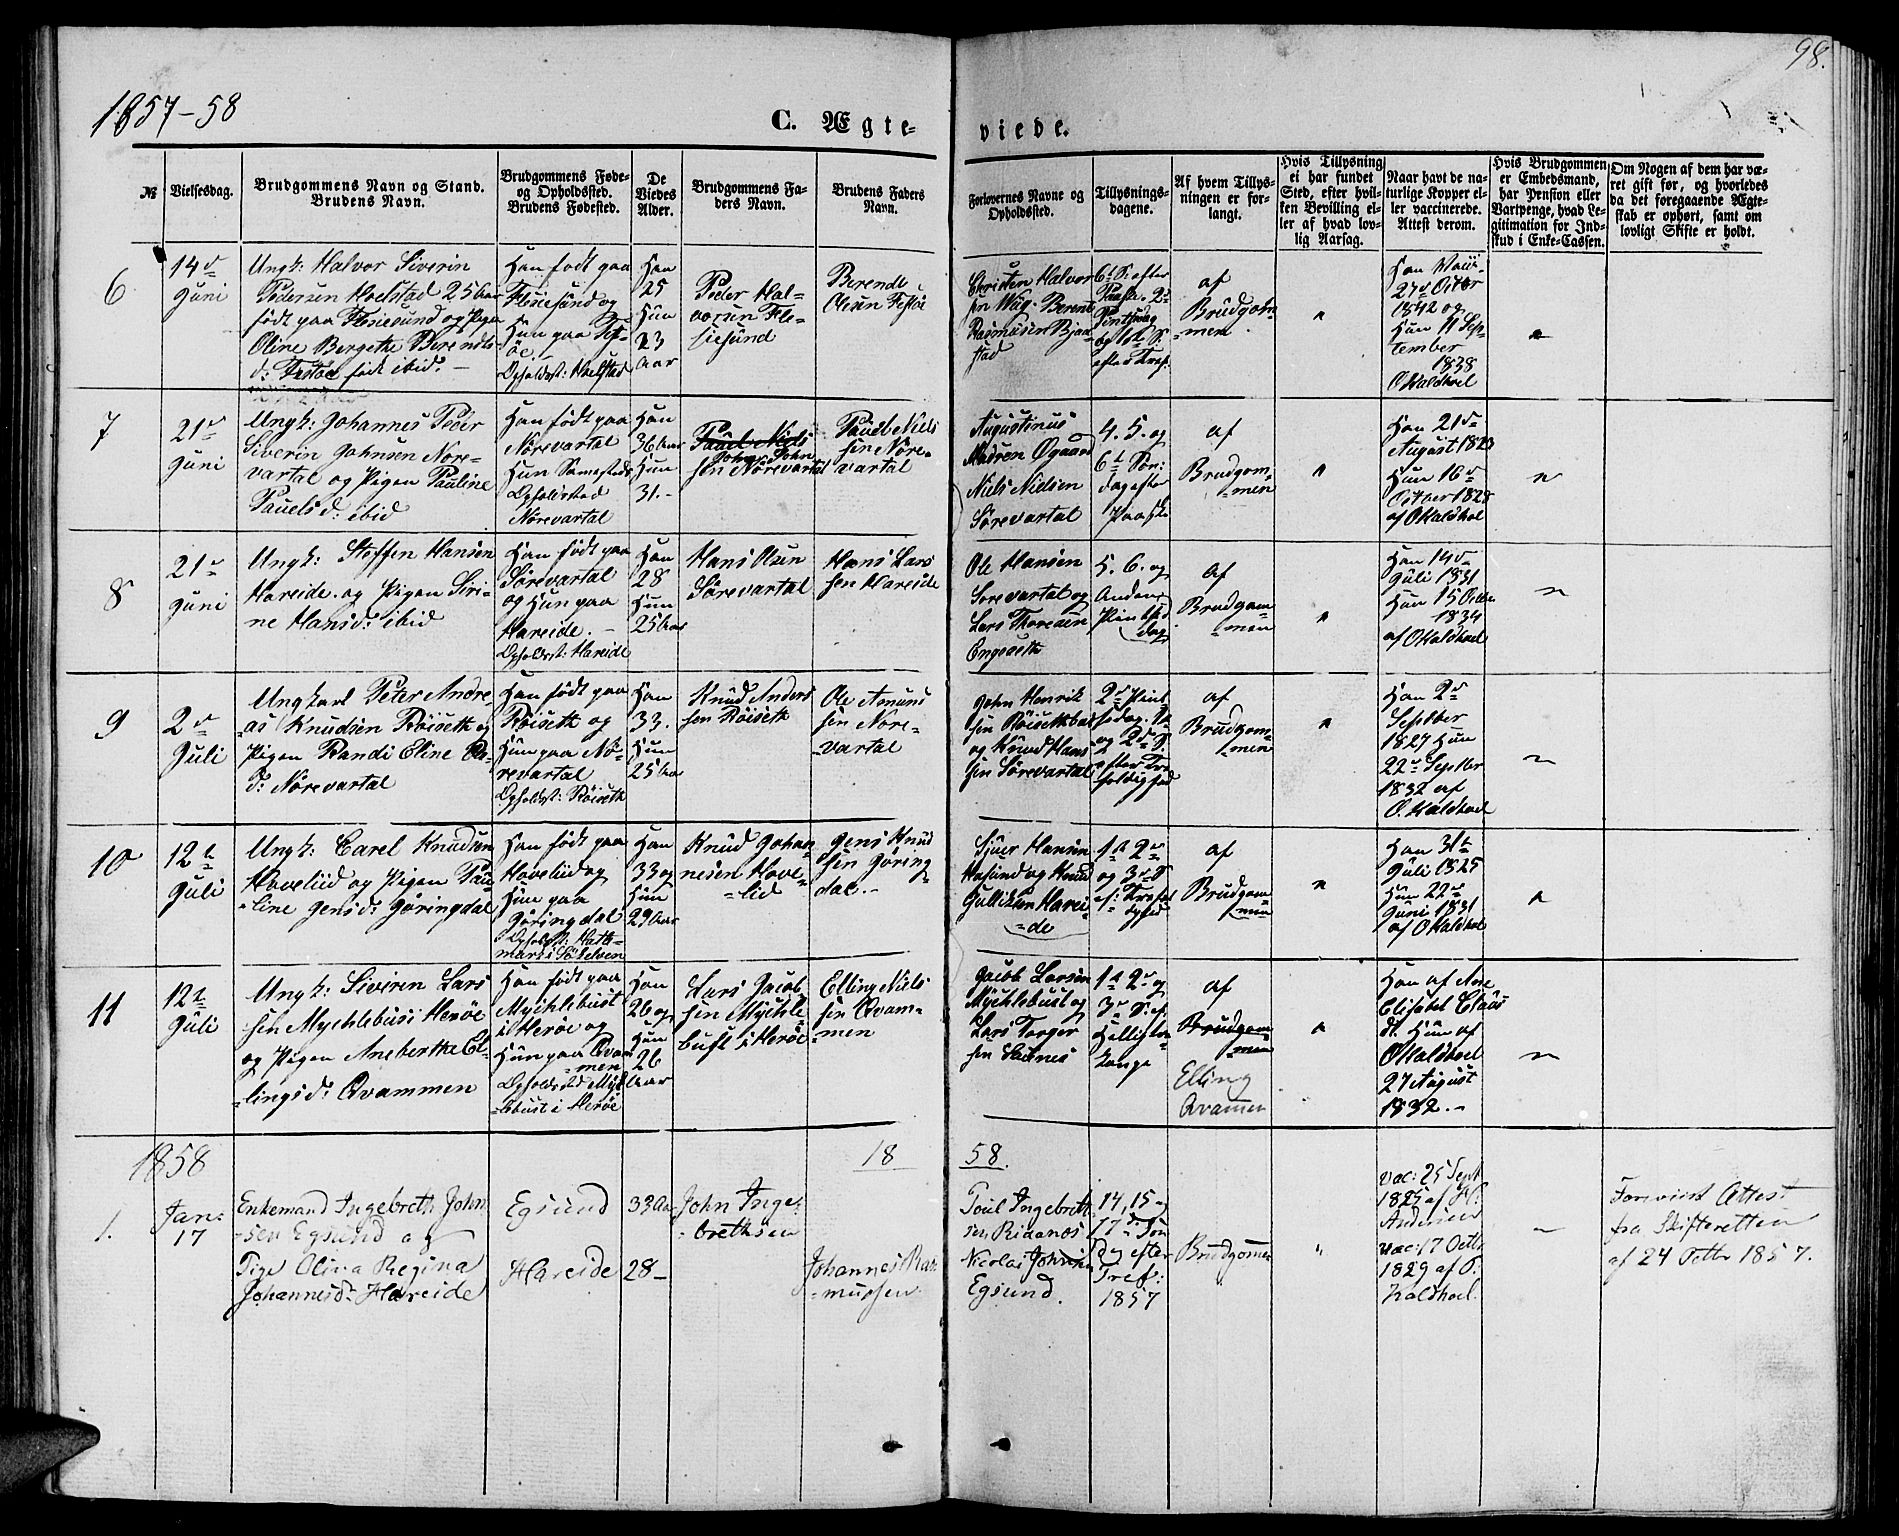 98.
1857-58
C. Ægteviede.
№
Vielsesdag.
Brudgommens Navn og Stand.
Brudens Navn.
Brudgommens Føde-
og Opholdssted.
Brudens Fødested.
De
Viedes
Alder.
Brudgommens Fa-
ders Navn.
Brudens Faders
Navn.
Forlovernes Navne og
Opholdssted.
Tillysnings-
dagene.
Af hvem Tillys-
ningen er for-
langt.
Hvis Tillysning
ei har fundet
Sted, efter hvil-
ken Bevilling el-
ler af hvad lov-
lig Aarsag.
Naar havt de na-
turlige Kopper el-
ler vaccinerede.
Attest derom.
Hvis Brudgommen
er Embedsmand,
har Pension eller
Vartpenge, hvad Le-
gitimation for Ind-
skud i Enke-Cassen.
Om Nogen af dem har væ-
ret gift før, og hvorledes
da det foregaaende Ægte-
skab er ophørt, samt om
lovligt Skifte er holdt.
6
14d
Juni
Ungk: Halvor Siverin
Pedersen Hoelstad 25 Aar
født paa Flusund og Pigen
Oline Bergethe Berendts
d: Festøe født ibid. —
Han født paa
Flusund og
Hun paa Fest-
øe.
Opholdsst: Hoelstad
Han
25
Hun
23
Aar
Peder Hal-
vorsen Flu-
siesund
Berendt
Olsen Festøe
Christen Halvor
sen Wag. Berent
Rasmusen Bjaa-
stad
6t S: efter
Paaske. 2d
Pintsedag
og 1st S.
efter Tref:
af
Brudgom-
men
Han
27d Octbr
1842 og
Hun 11 Sep-
tember
1838
O Kaldhoel
7
21d
Juni
Ungk: Johannes Peder
Siverin Johnsen Nore-
vartal og Pigen Pauline
Pauelsd: ibid
Han født paa
Nørevartal
Hun Sammesteds
Opholdssted
Nørevartal
Han
36 Aar
Hun
31.-
Pauel Niels
John John
sen Nørevartal
Pauel Niels
sen Nøre-
vartal
Augustinus
Madsen Øgaard
Niels Nielsen
Sørevartal
4. 5. og
6t Søn:
dag efter
Paaske
af
Brudgom-
men
Han 21d
August 1823
Hun 16d
October 1828
af O Kaldhol
8
21d
Juni
Ungk: Steffen Hansen
Hareide og Pigen Siri-
ne Hansd: ibid
Han født paa
Sørevartal
og Hun paa
Hareide. —
Opholdsst: Hareide
Han
28
Hun
25 Aar
Hans Olsen
Sørevartal
Hans Lars
sen Hareide
Ole Hansen
Sorevartal og
Lars Thoresen
Engesæth
5. 6. og
Anden
Pintse
dag
af
Brudgom-
men
Han 14d
Juli 1831
Hun 15 Octbr
1834
af O Kaldhoel
9
2d
Juli
Ungkarl Peter Andre
as Knudsen Røiseth og
Pigen Randi Eline Ols-
d: Nørevartal
Han født paa
Røiseth og
Hun paa Nø-
revartal
Opholdsst: Røiseth
Han
33.
Hun
25 Aar
Knud Anders
sen Røiseth
Ole Amund
sen Nøre-
vartal
John Henrik
sen Røisethbak
og Knud Hans-
sen Sørevartal
2d Pint
sedag. 1st
og 2d S.
efter Tre-
foldighed
af
Brudgom-
men
Han 2d
Septber
1827 Hun
22d Septbr
1832 af
O. Kaldhoel
10
12t
Juli
Ungk: Carel Knudsen
Haveliid og Pigen Pau-
line Jensd: Gøringdal
Han født paa
Haveliid og
Hun paa
Gøringdal
Opholdsst: Hatte-
mark i Søelven
Han
33 og
Hun
29 Aar
Knud Johan-
nesen Have-
lid
Jens Knud
sen Gøring-
dal. -
Sjver Hansen
Hasund og Knud
Gullikken Harei-
de
1st 2d
og 3d S
ef: Trefol
dighed
af
Brudgom-
men
Han 31t
Juli 1825
Hun 22d
Juni 1831
af O Kaldhoel
11
12t
Juli
Ungk: Siveren Lars
sen Mychlebust Herøe
og Pigen Ane Berthe El-
lingsd: Qvammen
Han født paa
Mychlebust
i Herøe og
Hun paa Qvam
men
Opholdssted Mykl
bust i Herøe
Han
26 og
Hun
26
Aar
Lars Jacob
sen Mychle-
bust i Herøe
Elling Niels
sen Qvam-
men
Jacob Larsen
Mychlebust og
Lars Torger
sen Saunes
1st 2d og
3d S: ef
Hellig tre
Konge
af
Brudgom-
men
Elling
Qvamen
Han af Ane
Elisabet Claus
dt. Hun af
O Kaldhoel
27 August
1832. -
1858
18
58.
1.
Jan:
17
Enkemand Ingebreth John
-sen Egsund og
Pige Olina Regina
Johannesd: Hareide
Egsund
Hareide
33 Aar
28 -
John Inge-
brethsen
Johannes Ras-
mussen
Poul Ingebreth
sen Ridanæs
Nicolai Johnsen
Egsund
14, 15 og
17d Søn
dag efter
Tref:
1857
Brudgomen
Vac: 25 Sept
1825 af H.
Andersen
Vac: 17 Octbr
1829 af O.
Kaldhoel.
Foreviist Attest
fra Skifteretten
af 24 Octbr 1857.